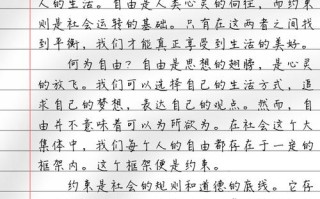 人的生活。自由是人类心灵的向往，而约束
则是社会运转的基础。只有在这两者之间找
到平衡，我们才能真正享受到生活的美好。
何为自由？自由是思想的翅膀，是心灵
的放飞。我们可以选择自己的生活方式，追
求自己的梦想，表达自己的观点。然而，自
由并不意味着可以为所欲为。在社会这个大
集体中，我们每个人的自由都存在于一定的
框架内。这个框架便是约束。
约束是社会的规则和道德的底线。它存